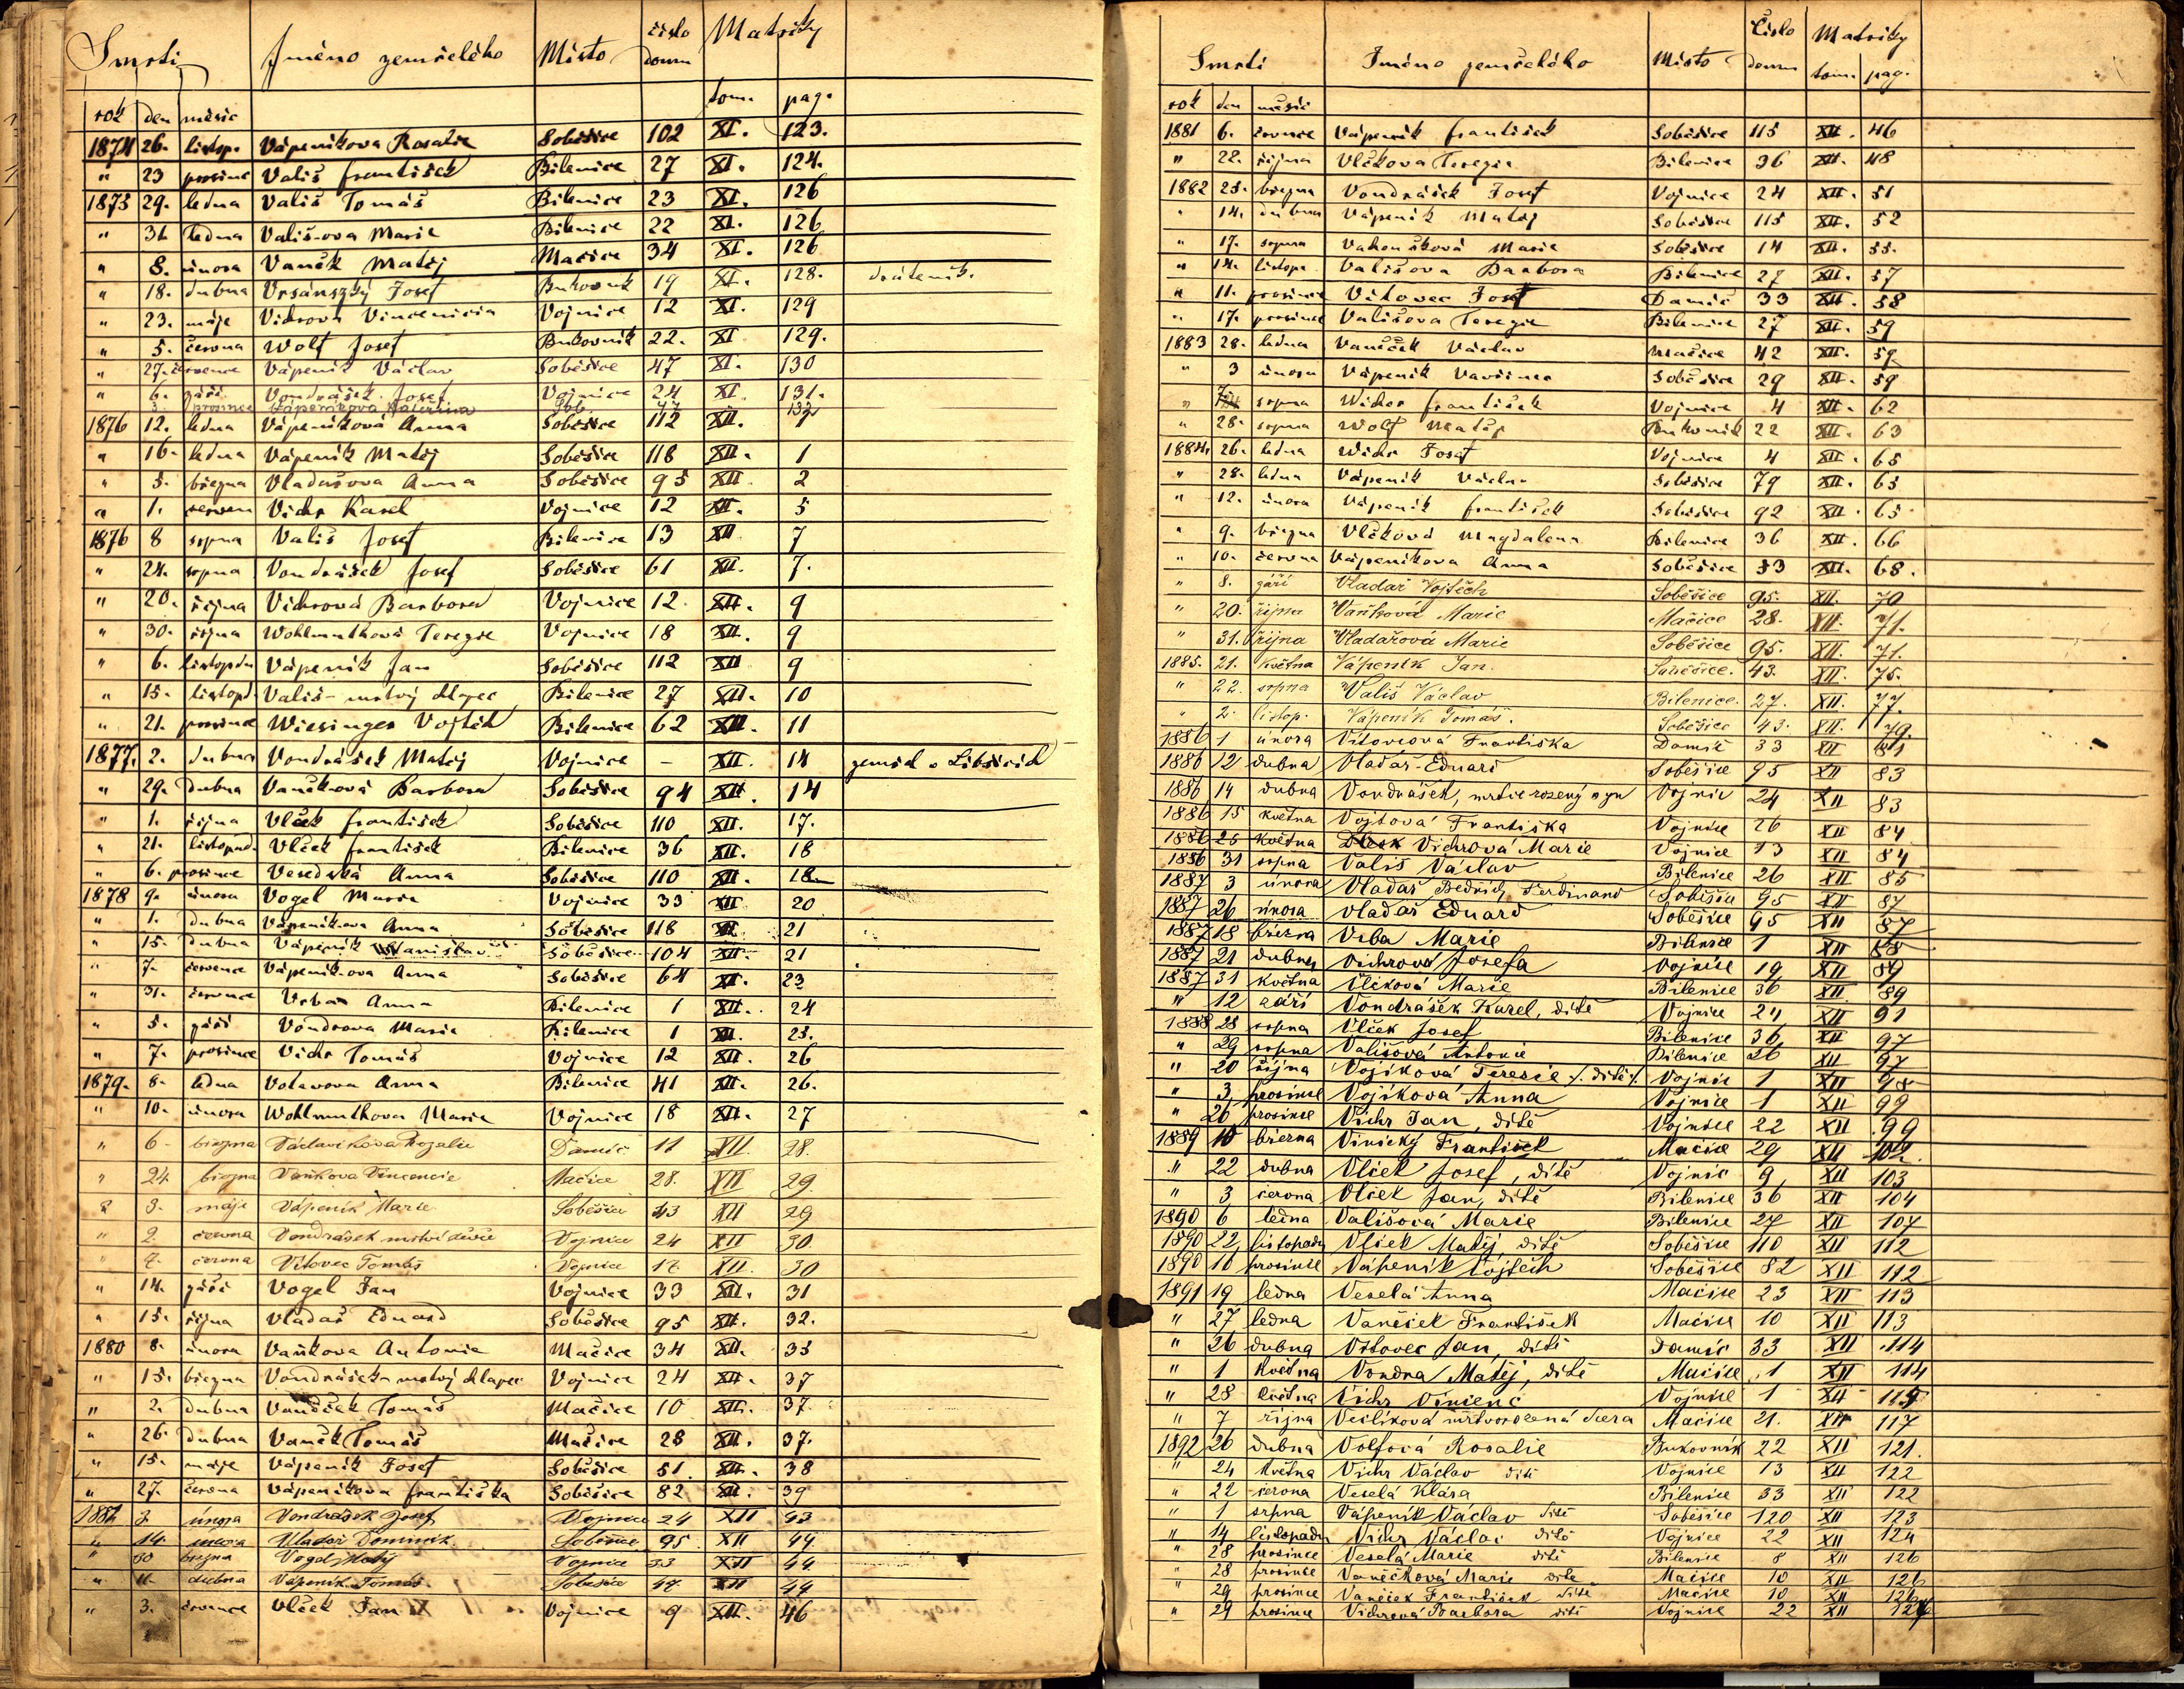 Smrti Jméno zemřelého Místo číslo domu Matriky
rok den měsíc tom. pag.
1874 26. listop. Vápeníkova Rosalie Soběšice 102 XI. 123.
" 23 prosince Vališ František Bílenice 27 XI. 124.
1875 29. ledna Vališ Tomáš Bilenice 23 XI. 126
" 31. ledna Vališ-ova Marie Bilenice 22 XI. 126
" 8. února Vaněk Matěj Mačice 34 XI. 126
" 18. dubna Vrsánszký Josef Bukovník 19 XI. 128. dráteník.
" 23. máje Vidrova Vincencia Vojnice 12 XI. 129
" 5. června Wolf Josef Bukovník 22. XI 129.
" 27. července Vápeník Václav Soběšice 47 XI. 130
" 6. září Vondrášek Josef Vojnice 24 XI 131.
3. prosince Vápeníkova Kateřina Sob. 47 132
1876 12. ledna Vápeníková Anna Soběšice 112 XII. 1
" 16. ledna Vápeník Matěj Soběšice 118 XII. 1
" 5. března Vladařova Anna Soběšice 95 XII 2
" 1. červen Vichr Karel Vojnice 12 XII. 5
1876 8 srpna Vališ Josef Bilenice 13 XII 7
" 24. srpna Vondrášek Josef Soběšice 61 XII. 7.
" 20. října Vichrová Barbora Vojnice 12. XII. 9
" 30. října Wohlmuthová Terezie Vojnice 18 XII. 9
" 6. listopadu Vápeník Jan Soběšice 112 XII 9
" 15. listopd. Vališ - mrtvý chlapec Bilenice 27 XII. 10
" 21. prosince Wiesinger Vojtěch Bilenice 62 XII. 11
1877. 2. dubna Vondrášek Matěj Vojnice – XII. 14 zemřel v Liběticích
" 29. dubna Vaňková Barbora Soběšice 94 XII. 14
" 1. října Vlček František Soběšice 110 XII. 17.
" 21. listopad. Vlček František Bilenice 36 XII. 18
" 6. prosince Veselská Anna Soběšice 110 XII. 18
1878 9. února Vogel Marie Vojnice 33 XII 20
" 1. dubna Vápeníkova Anna Soběšice 118 XII. 21
" 15. dubna Vápeník Stanislav Soběšice 104 XII. 21
" 7. července Vápeník-ova Anna Soběšice 64 XII. 23
" 31. července Vrba Anna Bilenice 1 XII. 24
" 5. září Vondrova Marie Bilenice 1 XII. 25.
" 7. prosince Vichr Tomáš Vojnice 12 XII. 26
1879. 8. ledna Votavova Anna Bilenice 41 XII. 26.
" 10. února Wohlmuthova Marie Vojnice 18 XII. 27
" 6 března Václavíkova Rozalie Damíč 11 XII. 28.
" 24. března Vaňkova Vincencie Mačice 28. XII 29.
" 3. máje Vápeník Marie Soběšice 43 XII 29
" 2 června Vondrášek mrtvé děvče Vojnice 24 XII 30.
" 7. června Vítovec Tomáš Vojnice 17. XII. 30
" 14. září Vogel Jan Vojnice 33 XII. 31
" 15. října Vladař Eduard Soběšice 95 XII. 32.
1880 8. února Vaňkova Antonie Mačice 34 XII. 35
" 15. března Vondrášek - mrtvý chlapec Vojnice 24 XII. 37
" 2. dubna Vaněček Tomáš Mačice 10 XII. 37.
" 26. dubna Vaněk Tomáš Mačice 28 XII. 37.
" 15. máje Vápeník Josef Soběšice 51 XII. 38
" 27. června Vápeníkova Františka Soběšice 82 XII. 39
1881 3. února Vondrášek Josef Vojnice 24 XII 43
" 14. února Vladař Dominik Soběšice 95 XII 44
" 30 března Vogel Matěj Vojnice 33 XII 44
" 11. dubna Vápeník Tomáš Soběšice 47 XII 44
" 3. července Vlček Jan Vojnice 9 XII. 46
Smrti Jméno zemřelého Místo Číslo domu Matriky
rok den měsíc tom. pag.
1881 6. července Vápeník František Soběšice 115 XII. 46
" 22. října Vlčkova Terezie Bilenice 36 XII. 48
1882 25. března Vondrášek Josef Vojnice 24 XII. 51
" 14. dubna Vápeník Matěj Soběšice 115 XII. 52
" 17. srpna Marie Soběšice 14 XII. 55.
" 14. listopa Vališova Barbora Bilenice 27 XII. 57
" 11. prosince Vítovec Josef Damíč 33 XII. 58
" 17. prosince Vališova Terezie Bilenice 27 XII. 59
1883 28. ledna Vaněček Václav Mačice 42 XII. 59
" 3 února Vápeník Vavřinec Soběšice 29 XII. 59
" srpna Wichr František Vojnice 4 XII. 62
" 28. srpna Wolf Matěj Bukovník 22 XII. 63
1884. 26. ledna Wichr Josef Vojnice 4 XII. 65
" 28. ledna Vápeník Václav Soběšice 79 XII. 65
" 12. února Vápeník František Soběšice 92 XII. 65
" 9. března Vlčková Magdalena Bilenice 36 XII. 66
" 10. června Vápeníkova Anna Soběšice 53 XII. 68.
" 8. září Vladař Vojtěch Soběšice 95. XII. 70
" 20. října Vaňková Marie Mačice 28. XII. 71.
" 31. října Vladařová Marie Soběšice 95. XII. 71.
1885. 21. května Vápeník Jan. Soběšice. 43. XII. 75.
" 22. srpna Vališ Václav Bilenice. 27. XII. 77.
" 2. listop. Vápeník Tomáš. Soběšice 43. XII. 79.
1886 1 února Vítovcová Františka Damíč 33 XII 81
1886 12 dubna Vladař Eduard Soběšice 95 XII 83
1886 14 dubna Vondrášek, mrtvě rozený syn Vojnic 24 XII 83
1886 15 května Vojtová Františka Vojnice 26 XII 84
1886 25 května Vichrová Marie Vojnice 13 XII 84
1886 31 srpna Vališ Václav Bilenice 26 XII 85
1887 3 února Vladař Bedřich, Ferdinand Soběšice 95 XII 87
1887 26 února Vladař Eduard Soběšice 95 XII 87
1887 18 března Vrba Marie Bilenice 1 XII 88
1887 21 dubna Vichrová Josefa Vojnice 19 XII 89
1887 31 května Vlčková Marie Bilenice 36 XII 89
" 12 září Vondrášek Karel, dítě Vojnice 24 XII 91
1888 28 srpna Vlček Josef Bilenice 36 XII 97
" 29 srpna Vališová Antonie Bilenice 26 XII 97
" 20 října Vojíková Teresie /. dítě /. Vojnic 1 XII 98
" 3 prosince Vojíková Anna Vojnice 1 XII 99
" 26 prosince Vichr Jan, dítě Vojnice 22 XII 99
1889 10 března Vinický František Mačice 29 XII 102.
" 22 dubna Vlček Josef, dítě Vojnic 9 XII 103
" 3 června Vlček Jan, dítě Bilenice 36 XII 104
1890 6 ledna Vališová Marie Bilenice 27 XII 107
1890 22 listopadu Vlček Matěj dítě Soběšice 110 XII 112
1890 10 prosince Vápeník Vojtěch Soběšice 82 XII 112
1891 19 ledna Veselá Anna Mačice 23 XII 113
" 27 ledna Vaněček František Mačice 10 XII 113
" 26 dubna Vítovec Jan, dítě Damíč 33 XII 114
" 1 května Vondra Matěj, dítě Mačice 1 XII 114
" 28 května Vichr Vincenc Vojnice 1 XII 115
" 7 října mrtvorozená dcera Mačice 21. XII 117
1892 26 dubna Volfová Rosalie Bukovník 22 XII 121.
" 24 května Vichr Václav dítě Vojnice 13 XII 122
" 22 června Veselá Klára Bilenice 33 XII 122
" 1 srpna Vápeník Václav dítě Soběšice 120 XII 123
" 14 listopadu Vichr Václav dítě Vojnice 22 XII 124
" 28 prosince Veselá Marie dítě Bilenice 8 XII 126
" 28 prosince Vaněčková Marie dítě Mačice 10 XII 126
" 29 prosince Vaněček František dítě Mačice 10 XII 126
" 29 prosince Vichrová Barbora dítě Vojnice 22 XII 126